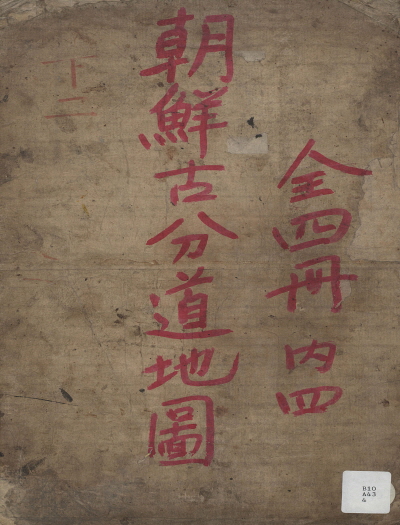 全四冊 内四
朝鮮古分道地圖
十二
B10
A43
4